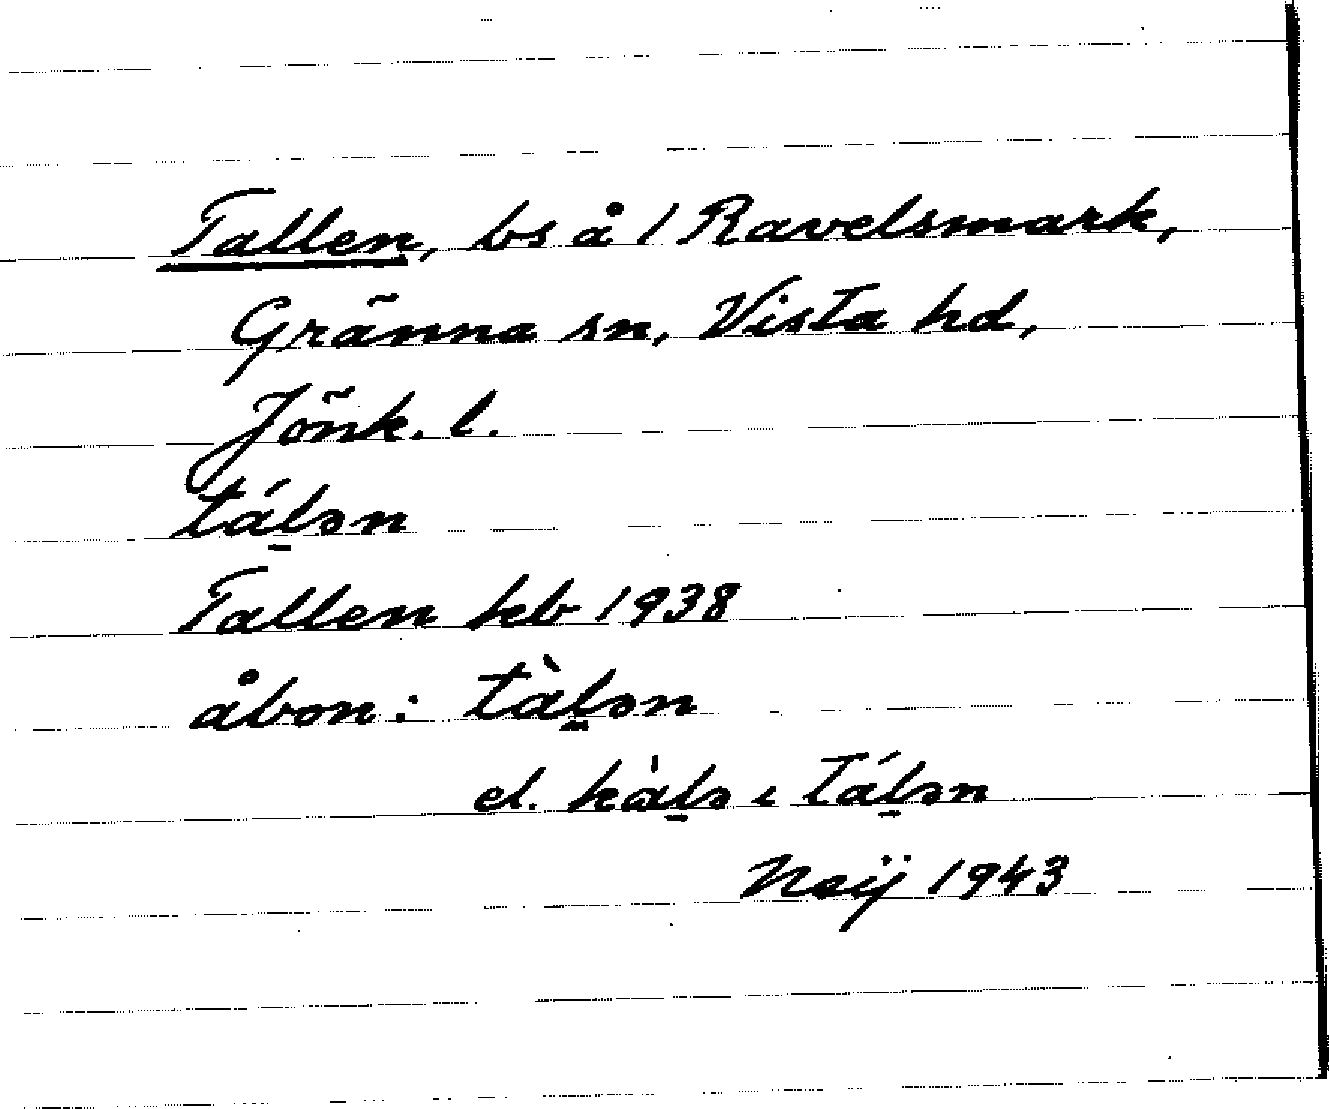 Tallen, bs å 1 Ravelsmark,
Gränna sn, Vista hd,
Jönk. l.
tálən
Tallen kb 1938
åbon: tàlən
el. kàlə ı tálən
Neij 1943